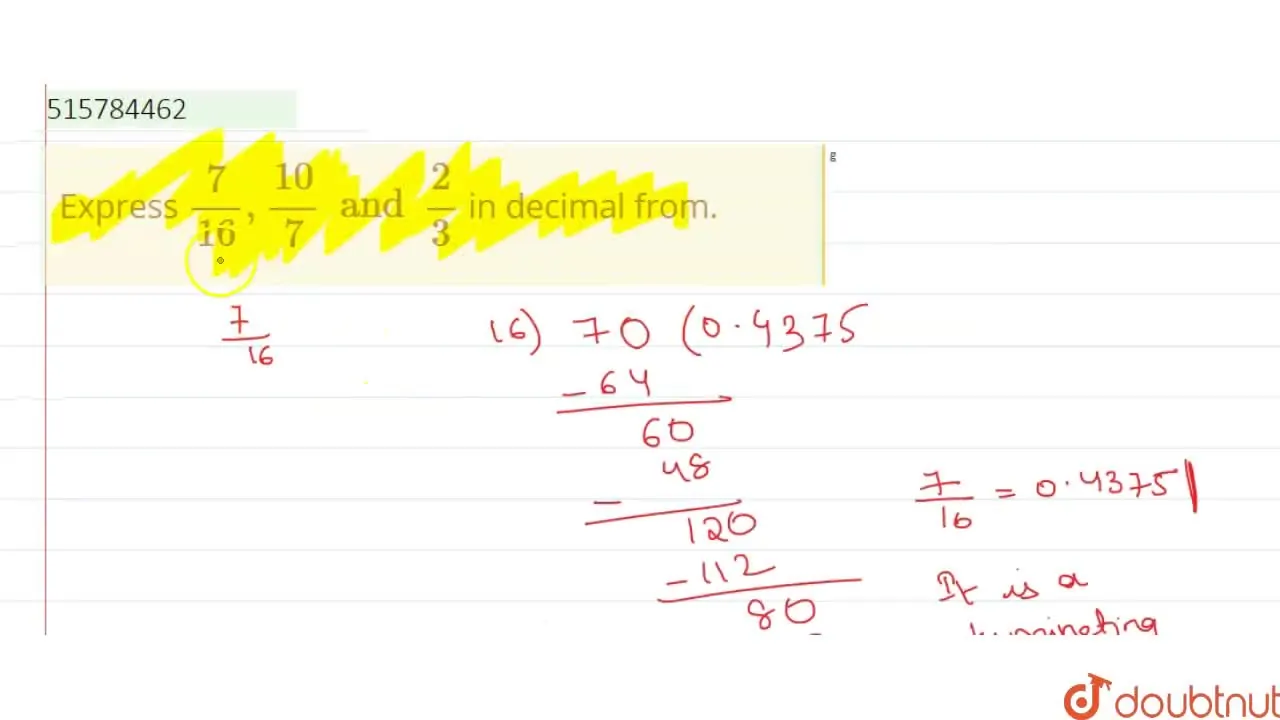 515784462
Express 7/16, 10/7 and 2/3 in decimal from.
7/16
16) 70 (0.4375
-64
60
- 48
120
-112
80
7/16 = 0.4375
It is a
terminating
doubtnut